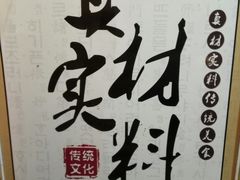 真材实料传统美食
真实
材料
传统
文化